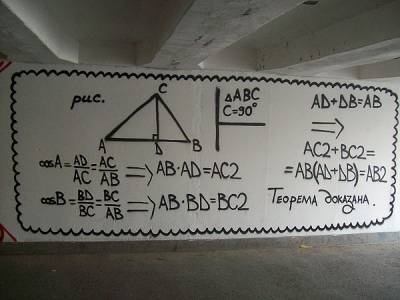 рис.
C
A
D
B
ΔABC
C=90°
cosA=AD/AC=AC/AB⇒AB·AD=AC2
cosB=BD/BC=BC/AB⇒AB·BD=BC2
AD+DB=AB
⇒
AC2+BC2=
=AB(AD+DB)=AB2
Теорема доказана.